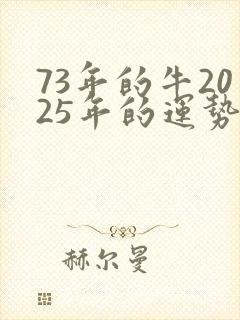 73年的牛20
25年的運勢
赫尔曼